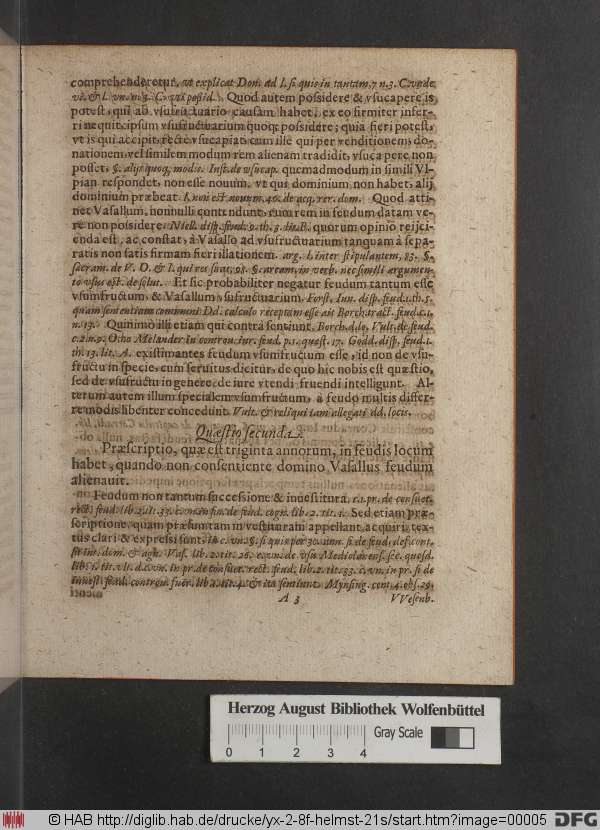 comprehenderetur, vt explicat Don. ad l. si quis in tantam. 7 n. 3. C. vnde
vi. & l. vn. n. 3. C. vti possid. Quod autem possidere & vsucapere is
potest, qui ab vsufructuario causam habet, ex eo firmiter infer-
ri nequit, ipsum vsufructuarium quoq; possidere; quia fieri potest,
vt is qui accipit, rectè vsucapiat, cum ille qui per venditionem, do-
nationem, vel similem modum rem alienam tradidit, vsucapere non
posset, §. alijs quoq; modis. Inst. de vsucap. quemadmodum in simili Vl-
pian respondet, non esse nouum, vt qui dominium non habet, alij
dominium præbeat. l. non est nouum. 46. de acq. rer. dom. Quod atti-
net Vasallum, nonnulli contendunt, eum rem in feudum datam ve-
re non possidere, Niell. disp. feud. 2. th. 3. lit. B. quorum opinio reijci-
enda est, ac constat, à Vasallo ad vsufructuarium tanquam à sepa-
ratis non satis firmam fieri illationem. arg. l. inter stipulantem, 83. §.
sacram. de V. O. & l. qui res suas, 98. §. aream, in verb. nec simili argumen-
to vsus est. de solut. Et sic probabiliter negatur feudum tantum esse
vsumfructum, & Vasallum vsufructuarium. Forst. Iun. disp. feud. 1. th. 5.
quam sententiam communi Dd. calculo receptam esse ait Borch. tract. feud. c. 1.
n. 19. Quinimò illi etiam qui contra sentiunt, Borch. d. lo. Vult. de feud.
c. 2. n. 9. Otho Melander in controu. iur. feud. p. 1. quæst. 17. Godd. disp. feud. 1.
th. 13. lit. A. existimantes feudum vsumfructum esse, id non de vsu-
fructu in specie, cum seruitus dicitur, de quo hic nobis est quæstio,
sed de vsufructu in genere, de iure vtendi fruendi intelligunt. Al-
terum autem illum specialem vsumfructum, à feudo multis differ-
re modis libenter concedunt. Vult. & reliqui iam allegati dd. locis.
Quæstio secunda.
Præscriptio, quæ est triginta annorum, in feudis locum
habet, quando non consentiente domino Vasallus feudum
alienauit.
Feudum non tantum successione & inuestitura, c. 1. pr. de consuet.
rect. feud. lib. 2. tit. 33. c. vn. in fin. de feud. cogn. lib. 2. tit. 1. Sed etiam præ-
scriptione, quam præsumtam inuestituram appellant, acquiri, tex-
tus clari & expressi sunt.
A 3 VVesenb.
Herzog August Bibliothek Wolfenbüttel
Gray Scale
0 1 2 3 4
© HAB http://diglib.hab.de/drucke/yx-2-8f-helmst-21s/start.htm?image=00005 DFG